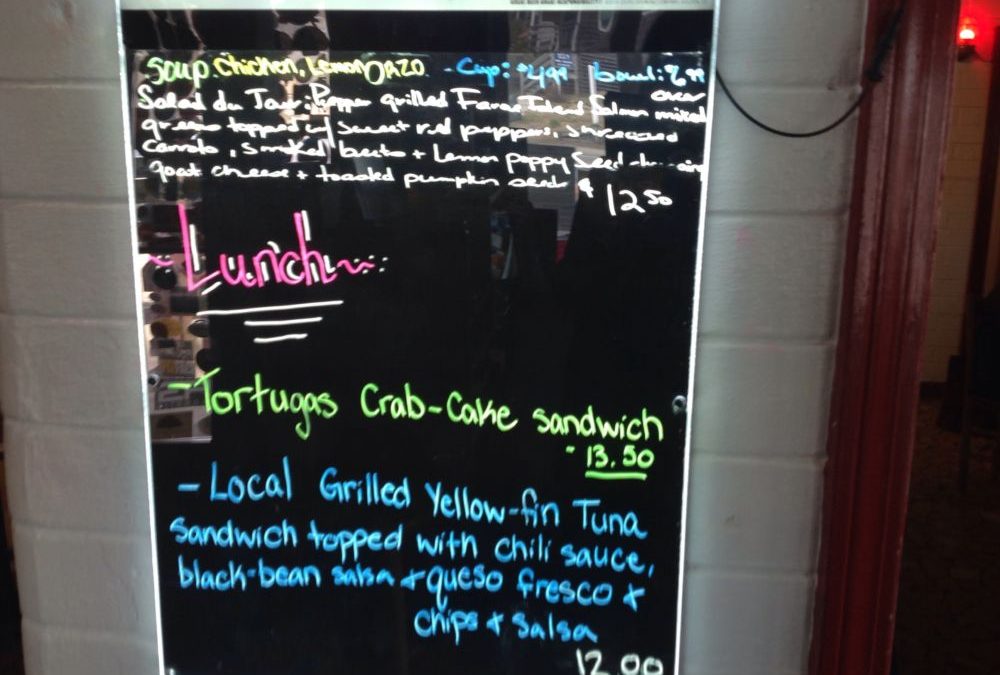 Soup: Chicken, Lemon Orzo - Cup: $4.99 / bowl: 6.99
Salad du Jour: Pepper grilled Faroe Island Salmon over mixed
greens topped w/ sweet red peppers, shredded
carrots, smoked beets + Lemon poppy Seed dressing
goat cheese + toasted pumpkin seeds $ 12.50
~Lunch~
-Tortugas Crab-Cake sandwich
- 13.50
- Local Grilled Yellow-fin Tuna
sandwich topped with chili sauce,
black-bean salsa + queso fresco +
chips + salsa
12.00